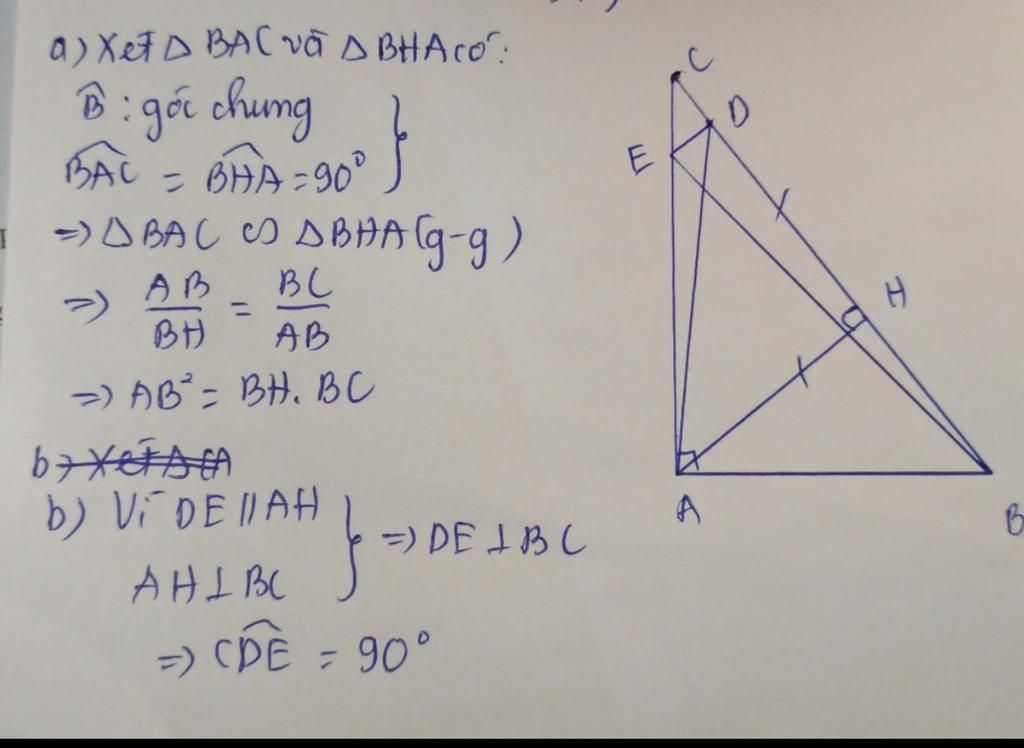 a) Xét △ BAC và △ BHA có:
B̂ : góc chung
BAC = BHA = 90°
=> △ BAC ∽ △ BHA (g-g)
=> AB/BH = BC/AB
=> AB² = BH. BC
b) Vì DE // AH
AH ⊥ BC
=> DE ⊥ BC
=> CDE = 90°
C
D
E
H
A
B